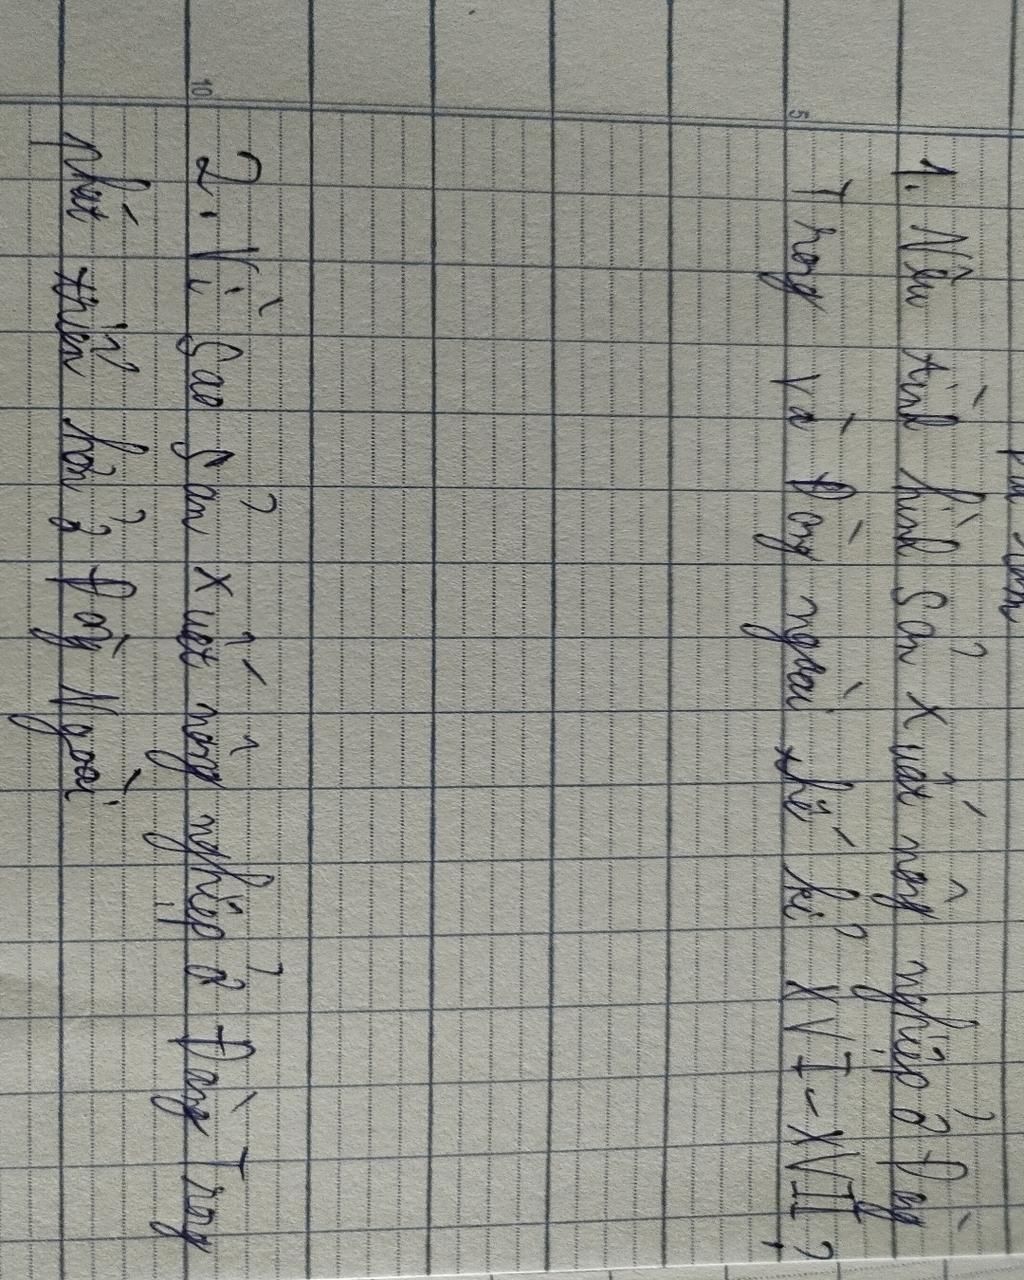 1. Nêu tình hình sản xuất nông nghiệp ở Đàng
Trong và Đàng ngoài thế kỉ XVI-XVII?
2. Vì sao sản xuất nông nghiệp ở Đàng Trong
phát triển hơn ở Đàng Ngoài
5
10